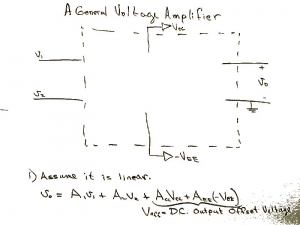 A General Voltage Amplifier
Vcc
v1
+
v2
vo
-
-VEE
1) Assume it is linear.
vo = A1v1 + A2v2 + AccVcc + AEE(-VEE)
Vacc = D.C. Output Offset Voltage